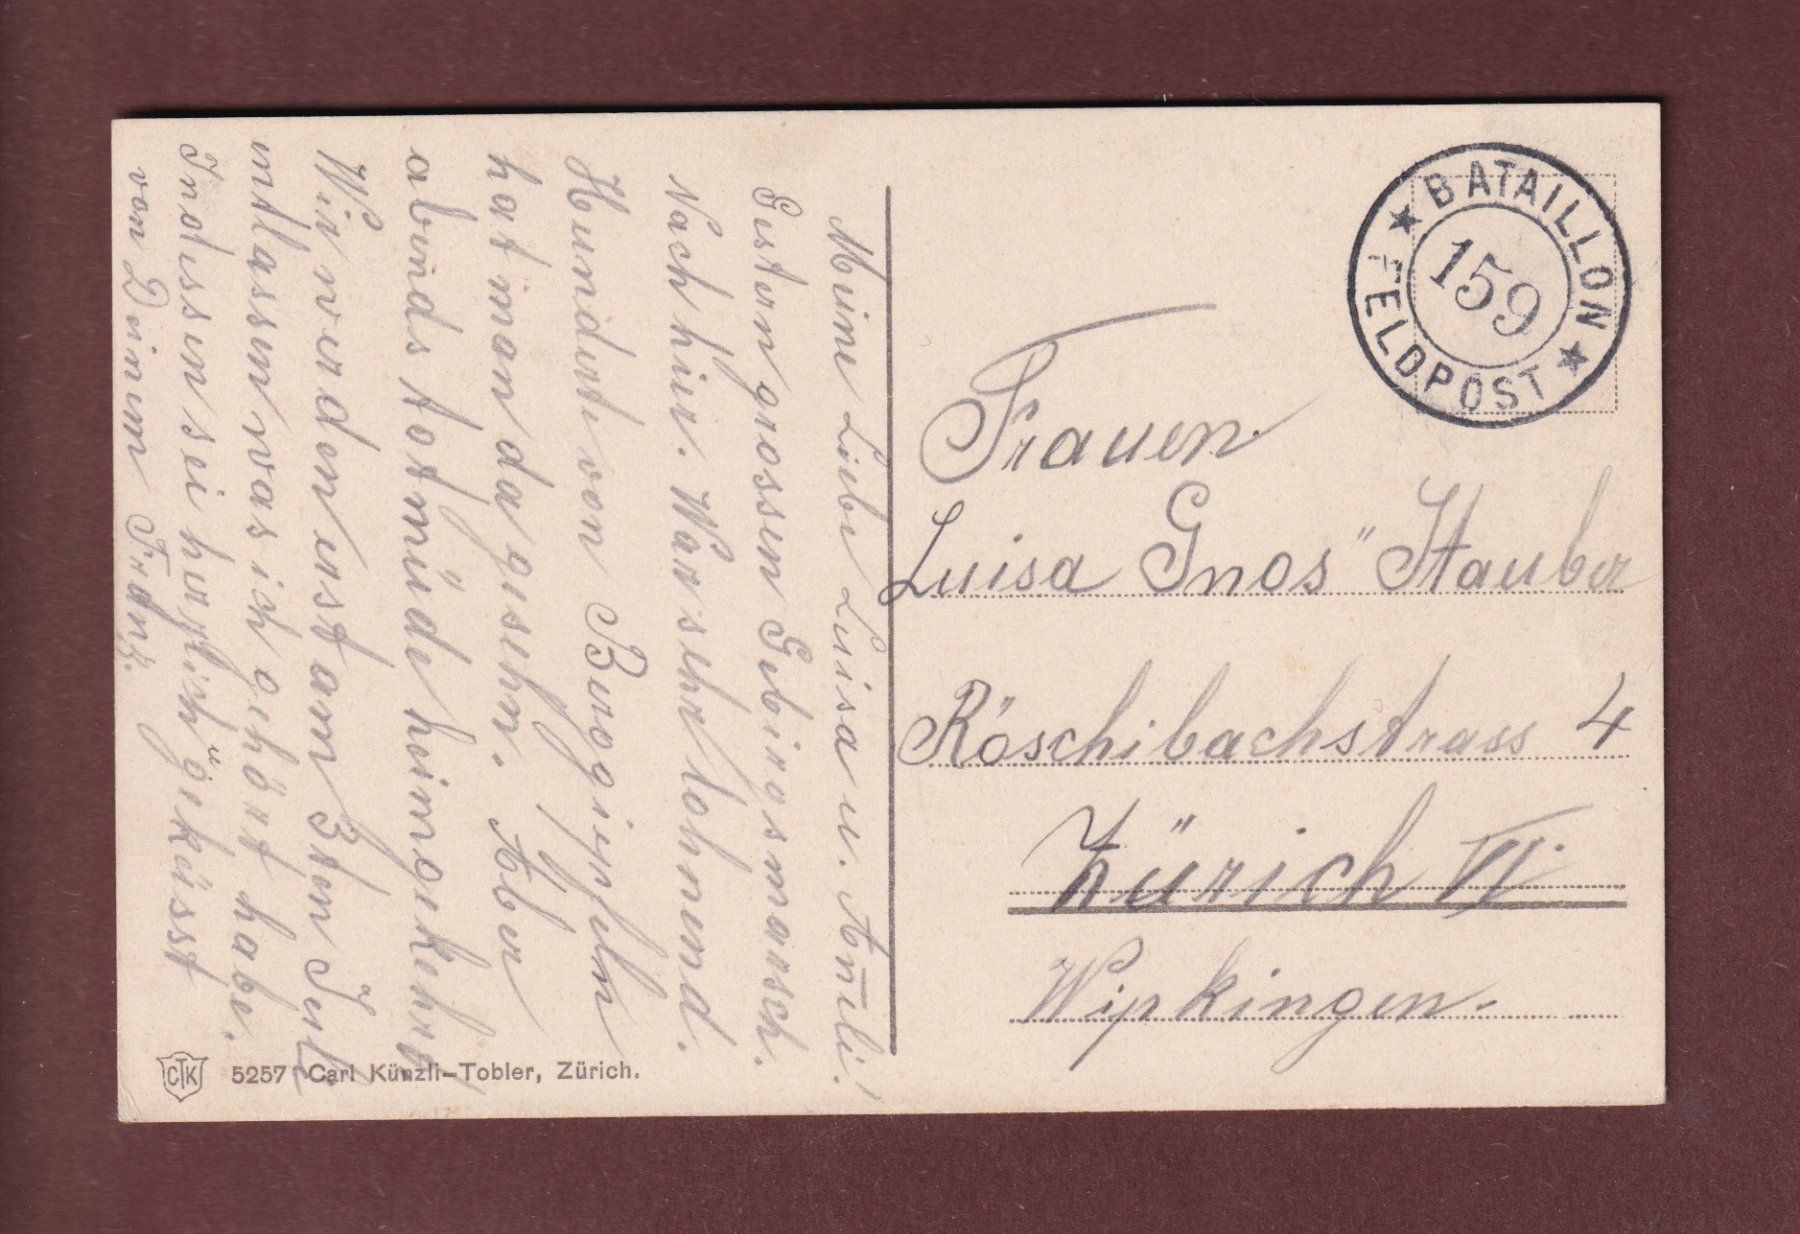 Meine Liebe Luisa u. Anneli!
Gestern grossen Gebirgsmarsch.
Nach hier. War sehr lohnend.
Hunderte von Berggipfeln
hat man da gesehen. Aber
abends totmüde heimgekehrt
Wir werden erst am 3ten Juli
entlassen was ich gehört habe.
Indessen sei herzlich geküsst
von Deinem Franz.
BATAILLON
159
FELDPOST
Frauen.
Luisa Gnos" Stauber
Röschibachstrass 4
Zürich VI
Wipkingen.
CTK 5257 Carl Künzli-Tobler, Zürich.